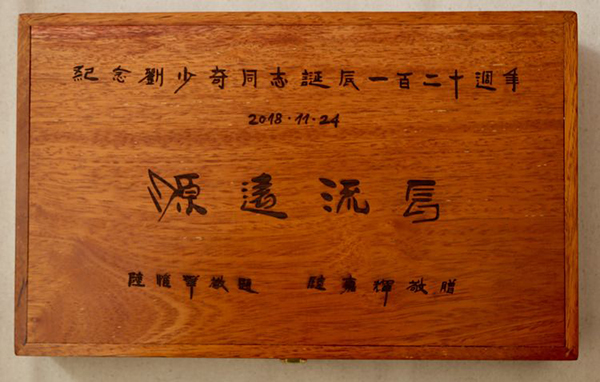 紀念劉少奇同志誕辰一百二十週年
2018·11·24
源遠流長
陸敬題 陸輝敬贈